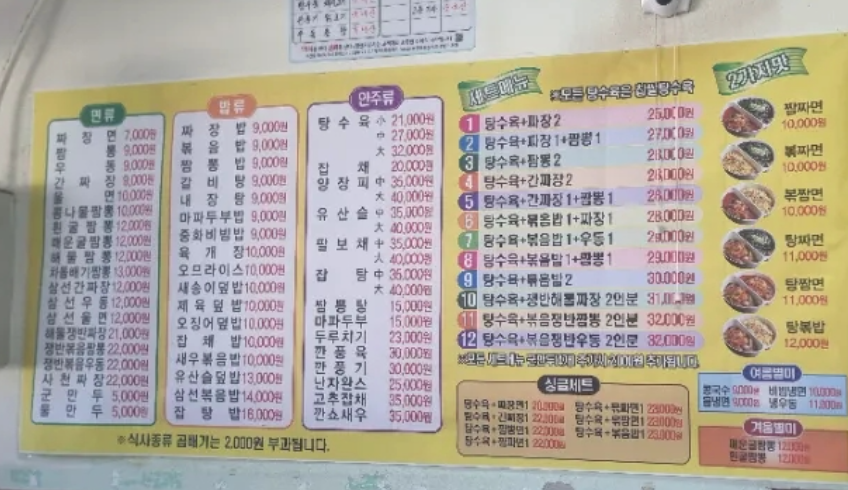 면류
짜장면 7,000원
짬뽕 9,000원
우동 9,000원
간짜장 9,000원
울면 10,000원
콩나물짬뽕 10,000원
흰굴짬뽕 12,000원
매운굴짬뽕 12,000원
해물짬뽕 12,000원
차돌배기짬뽕 13,000원
삼선간짜장 12,000원
삼선우동 12,000원
삼선울면 12,000원
해물쟁반짜장 21,000원
쟁반볶음짬뽕 22,000원
쟁반볶음우동 22,000원
사천짜장 22,000원
군만두 5,000원
물만두 5,000원
밥류
짜장밥 9,000원
볶음밥 9,000원
짬뽕밥 9,000원
갈비탕 9,000원
내장탕 9,000원
마파두부밥 9,000원
중화비빔밥 9,000원
육개장 10,000원
오므라이스 10,000원
새송이덮밥 10,000원
제육덮밥 10,000원
오징어덮밥 10,000원
잡채밥 10,000원
새우볶음밥 10,000원
유산슬덮밥 13,000원
삼선볶음밥 14,000원
잡탕밥 16,000원
안주류
탕수육 小 21,000원
中 27,000원
大 32,000원
잡채 20,000원
양장피 中 35,000원
大 40,000원
유산슬 中 35,000원
大 40,000원
필보채 中 35,000원
大 40,000원
잡탕 中 35,000원
大 40,000원
짬뽕탕 15,000원
마파두부 15,000원
두루치기 23,000원
깐풍육 30,000원
깐풍기 30,000원
난자완스 25,000원
고추잡채 35,000원
깐쇼새우 35,000원
※식사종류 곱배기는 2,000원 부과됩니다.
세트메뉴 ※모든 탕수육은 찹쌀탕수육
1 탕수육+짜장2 25,000원
2 탕수육+짜장1+짬뽕1 27,000원
3 탕수육+짬뽕2
4 탕수육+간짜장2
5 탕수육+간짜장1+짬뽕1 28,000원
6 탕수육+볶음밥1+짜장1 28,000원
7 탕수육+볶음밥1+우동1 29,000원
8 탕수육+볶음밥1+짬뽕1 29,000원
9 탕수육+볶음밥2 30,000원
10 탕수육+쟁반해물짜장 2인분
11 탕수육+볶음쟁반짬뽕 2인분 32,000원
12 탕수육+볶음쟁반우동 2인분 32,000원
싱글세트
탕수육+짜장면1 20,000원
탕수육+간짜장1 22,000원
탕수육+짬뽕면1 22,000원
탕수육+짬짜면1 22,000원
탕수육+볶음밥1 23,000원
2가지맛
짬짜면
10,000원
볶짜면
10,000원
볶짬면
10,000원
탕짜면
11,000원
탕짬면
11,000원
탕볶밥
12,000원
여름별미
콩국수 9,000원 비빔냉면 10,000원
물냉면 9,000원 냉우동 11,000원
겨울별미
매운굴짬뽕 12,000원
흰굴짬뽕 12,000원